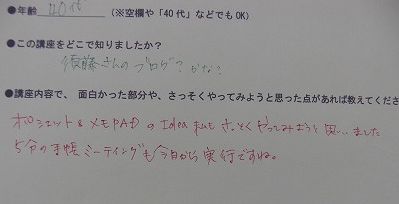 ●年齢 40代 (※空欄や「40代」などでもOK)
●この講座をどこで知りましたか?
須藤さんのブログ?かな?
●講座内容で、面白かった部分や、さっそくやってみようと思った点があれば教えてくださ
ポシェット&メモPADのIdea さっそくやってみようと思いました
5分の手帳ミーティングも今日から実行ですね。